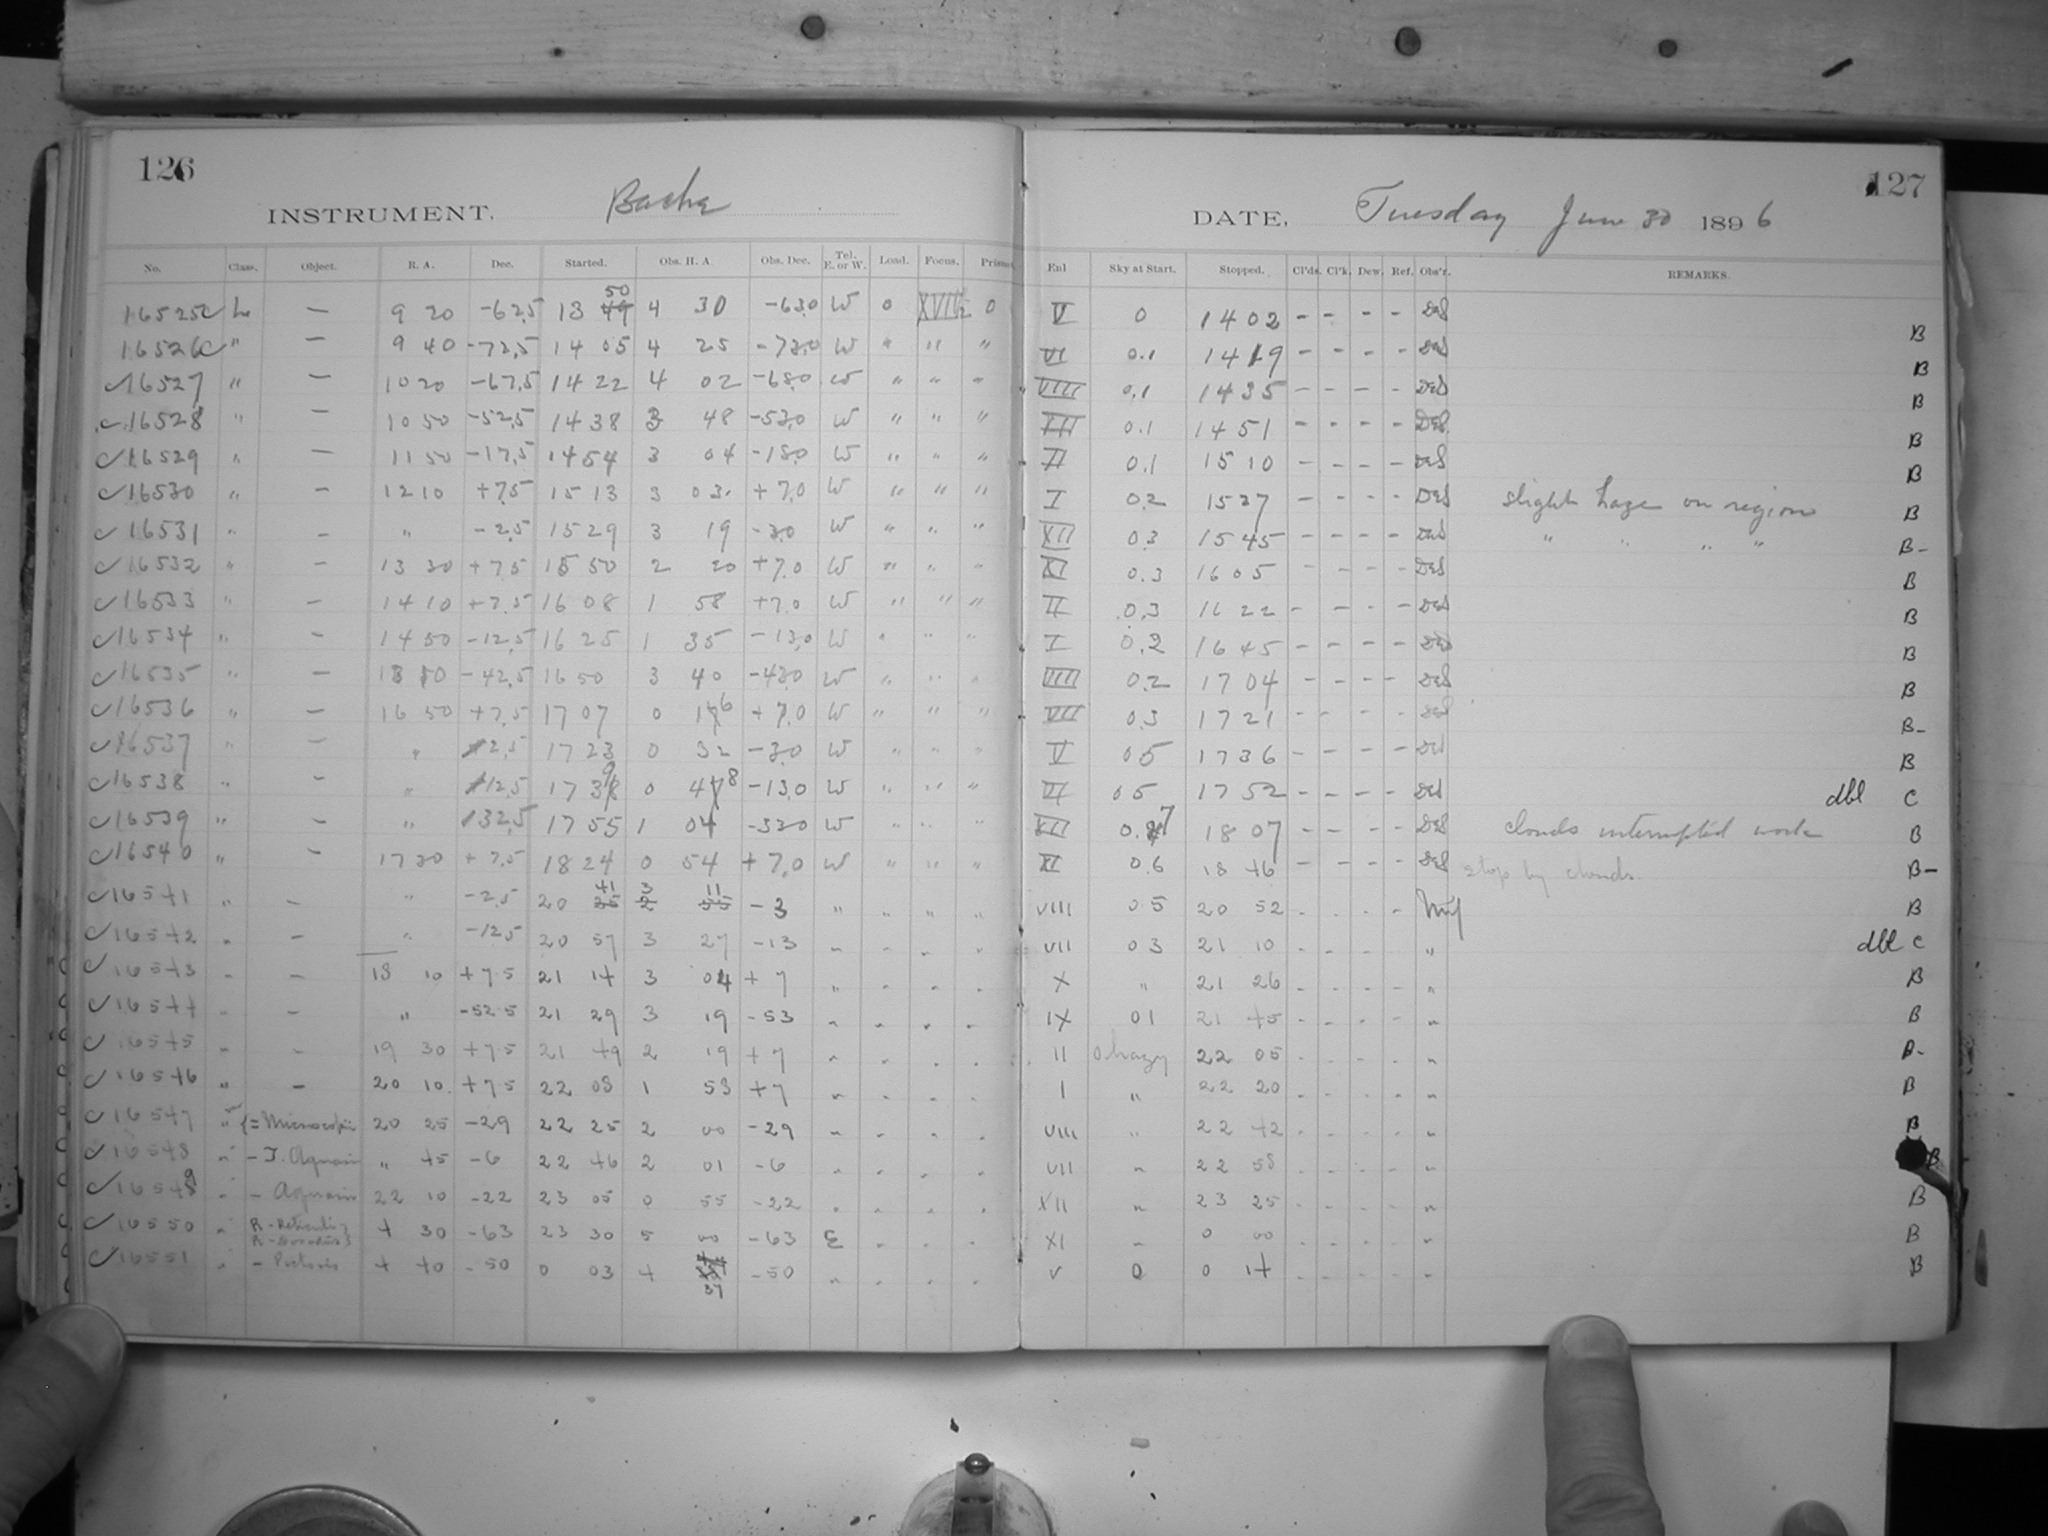 126
INSTRUMENT. Bache
No. Class. Object. R. A. Dec. Started. Obs. H. A. Obs. Dec. Tel. E. or W. Load. Focus. Prism
16525 L — 9 20 -62.5 13 50 4 30 -63.0 W 0 XVII½ 0
16526 " — 9 40 -72.5 14 05 4 25 -73.0 W " " "
16527 " — 10 20 -67.5 14 22 4 02 -68.0 W " " "
16528 " — 10 50 -52.5 14 38 3 48 -53.0 W " " "
16529 " — 11 50 -17.5 14 54 3 04 -18.0 W " " "
16530 " — 12 10 +7.5 15 13 3 03 +7.0 W " " "
16531 " — " -2.5 15 29 3 19 -3.0 W " " "
16532 " — 13 30 +7.5 15 50 2 20 +7.0 W " " "
16533 " — 14 10 +7.5 16 08 1 58 +7.0 W " " "
16534 " — 14 50 -12.5 16 25 1 35 -13.0 W " " "
16535 " — 13 10 -42.5 16 50 3 40 -43.0 W " " "
16536 " — 16 50 +7.5 17 07 0 16 +7.0 W " " "
16537 " — " -2.5 17 23 0 32 -3.0 W " " "
16538 " — " -12.5 17 39 0 48 -13.0 W " " "
16539 " — " -32.5 17 55 1 04 -32.0 W " " "
16540 " — 17 30 +7.5 18 24 0 54 +7.0 W " " "
16541 " — " -2.5 20 41 3 11 -3 " " " "
16542 " — " -12.5 20 57 3 27 -13 " " " "
16543 " — 18 10 +7.5 21 14 3 04 +7 " " " "
16544 " — " -52.5 21 29 3 19 -53 " " " "
16545 " — 19 30 +7.5 21 49 2 19 +7 " " " "
16546 " — 20 10 +7.5 22 03 1 53 +7 " " " "
16547 " 20 25 -29 22 25 2 00 -29 " " " "
16548 " - T. Aquarii " 45 -6 22 46 2 01 -6 " " " "
16549 " - Aquarii 22 10 -22 23 05 0 55 -22 " " " "
16550 " R - Reticuli 4 30 -63 23 30 5 00 -63 E " " "
16551 " - Pictoris 4 40 -50 0 03 4 37 -50 " " " "
127
DATE, Tuesday June 30 1896
Enl Sky at Start. Stopped. Cl'ds. Cl'k. Dew. Ref. Obs'r. REMARKS.
V 0 14 02 - - - - DeS B
VI 0.1 14 19 - - - - DeS B
VIII 0.1 14 35 - - - - DeS B
0.1 14 51 - - - - DeS B
0.1 15 10 - - - - DeS B
I 0.2 15 27 - - - - DeS slight haze on region B
XII 0.3 15 45 - - - - DeS " " " " B-
XI 0.3 16 05 - - - - DeS B
II 0.3 16 22 - - - - DeS B
I 0.2 16 45 - - - - DeS B
IIII 0.2 17 04 - - - - DeS B
VII 0.3 17 21 - - - - DeS B-
V 0.5 17 36 - - - - DeS B
VI 0.5 17 52 - - - - DeS dbl C
XII 0.7 18 07 - - - - DeS clouds interrupted work B
XI 0.6 18 46 - - - - DeS stop by clouds. B-
VIII 0.5 20 52 - - - - B
VII 0.3 21 10 - - - - " dbl C
X " 21 26 - - - - " B
IX 01 21 45 - - - - " B
II 0 hazy 22 05 - - - - " B-
I " 22 20 - - - - " B
VIII " 22 42 - - - - " B
VII " 22 58 - - - - " B
XII " 23 25 - - - - " B
XI " 0 00 - - - - " B
V 0 0 14 - - - - " B